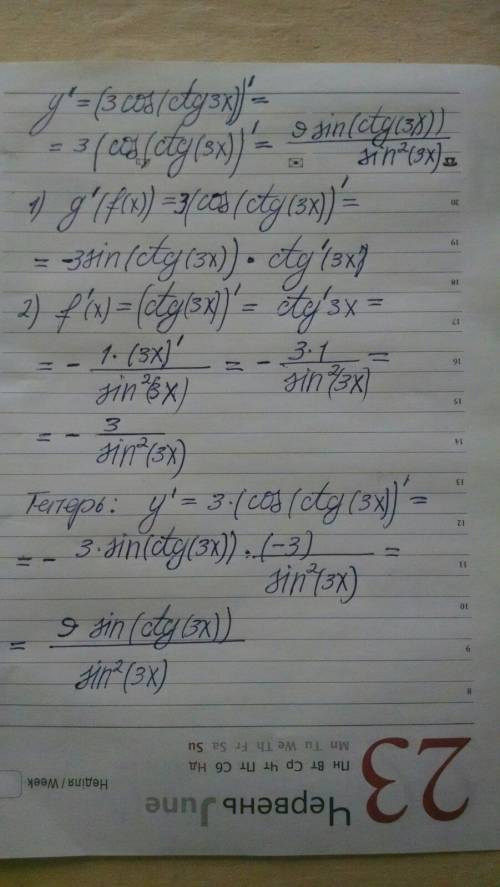 y' = (3 cos(ctg 3x))' =
= 3 (cos(ctg(3x))' = 9 sin(ctg(3x)) / sin²(3x)
1) g'(f(x)) = 3(cos(ctg(3x))' =
= -3 sin(ctg(3x)) · ctg'(3x)
2) f'(x) = (ctg(3x))' = ctg'3x =
= - 1·(3x)' / sin²(3x) = - 3·1 / sin²(3x) =
= - 3 / sin²(3x)
Теперь: y' = 3·(cos(ctg(3x))' =
= - 3·sin(ctg(3x)) · (-3) / sin²(3x) =
= 9 sin(ctg(3x)) / sin²(3x)
20
19
18
17
16
15
14
13
12
11
10
9
8
23
Mn Tu We Th Fr Sa Su
Пн Вт Ср Чт Пт Сб Нд
Неділя / Week
Червень June